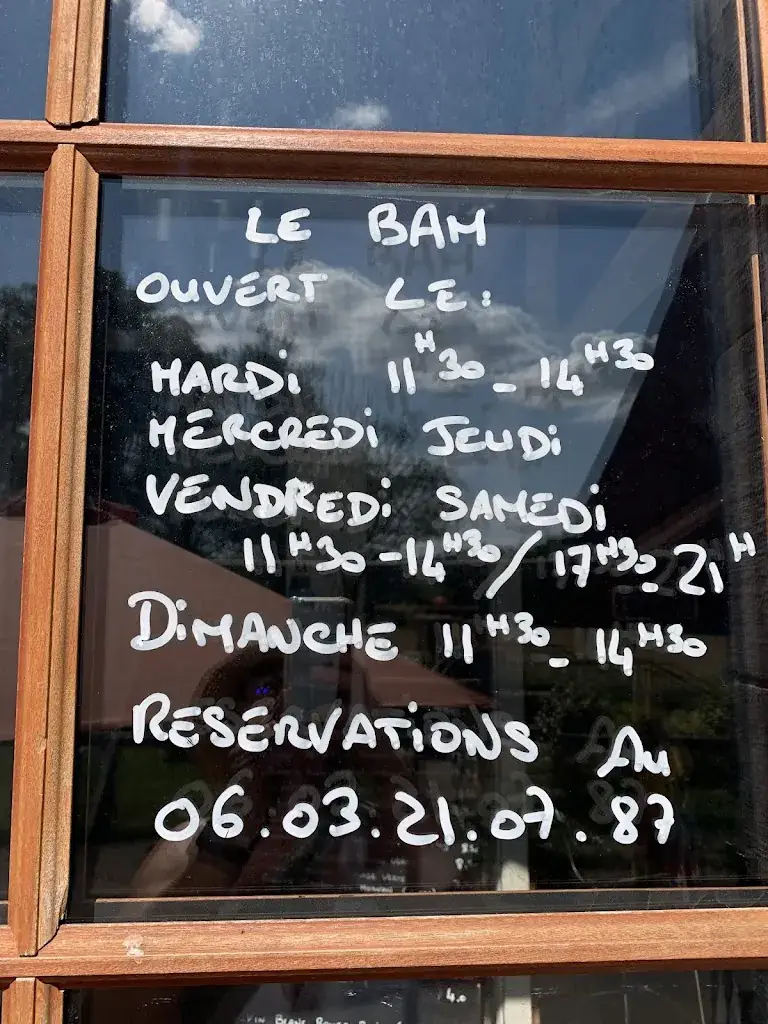 LE BAM
OUVERT LE:
MARDi 11H30 - 14H30
MERCREDi JEUDi
VENDREDi SAMEDi
11H30 - 14H30 / 17H30 - 21H
DiMANCHE 11H30 - 14H30
RESERVATiONS Au
06.03.21.07.87